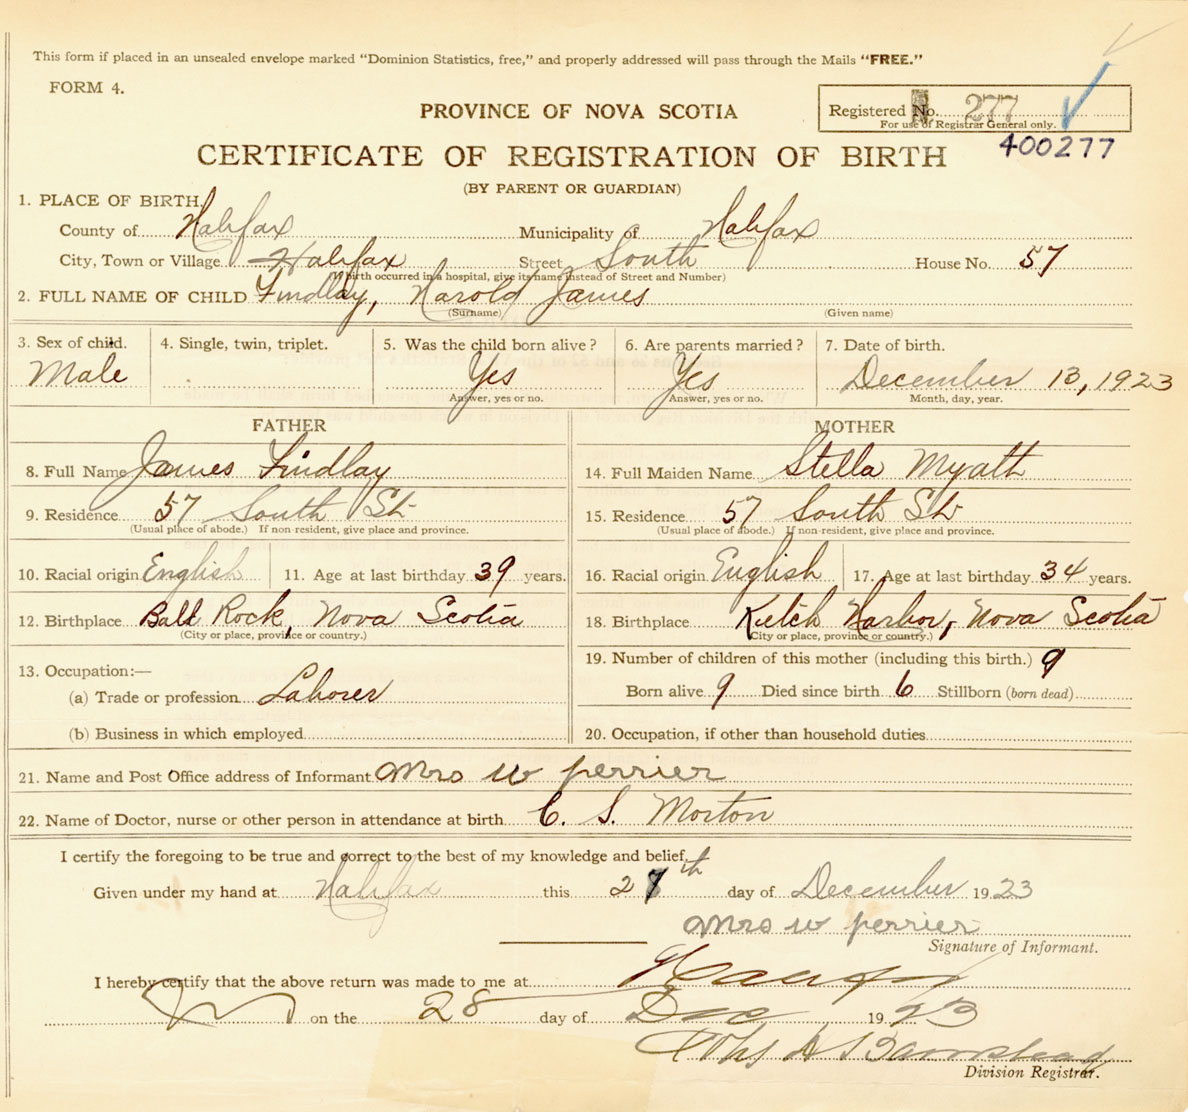 This form if placed in an unsealed envelope marked "Dominion Statistics, free," and properly addressed will pass through the Mails "FREE."
FORM 4.
PROVINCE OF NOVA SCOTIA
Registered No. 277
For use of Registrar General only.
400277
CERTIFICATE OF REGISTRATION OF BIRTH
(BY PARENT OR GUARDIAN)
1. PLACE OF BIRTH
County of Halifax Municipality of Halifax
City, Town or Village Halifax Street South House No. 57
(If birth occurred in a hospital, give its name instead of Street and Number)
2. FULL NAME OF CHILD Findlay, Harold James
(Surname) (Given name)
3. Sex of child. 4. Single, twin, triplet. 5. Was the child born alive? 6. Are parents married? 7. Date of birth.
Male Yes Yes December 13, 1923
Answer, yes or no. Answer, yes or no. Month, day, year.
FATHER MOTHER
8. Full Name James Findlay 14. Full Maiden Name Stella Myatt
9. Residence 57 South St 15. Residence 57 South St
(Usual place of abode.) If non resident, give place and province. (Usual place of abode.) If non-resident, give place and province.
10. Racial origin English 11. Age at last birthday 39 years. 16. Racial origin English 17. Age at last birthday 34 years.
12. Birthplace Bald Rock, Nova Scotia 18. Birthplace Ketch Harbor, Nova Scotia
(City or place, province or country.) (City or place, province or country.)
13. Occupation:— 19. Number of children of this mother (including this birth.) 9
(a) Trade or profession Laborer Born alive 9 Died since birth 6 Stillborn (born dead)
(b) Business in which employed 20. Occupation, if other than household duties
21. Name and Post Office address of Informant Mrs W perrier
22. Name of Doctor, nurse or other person in attendance at birth C. S. Morton
I certify the foregoing to be true and correct to the best of my knowledge and belief,
Given under my hand at Halifax this 27th day of December 1923
Mrs W perrier
Signature of Informant.
I hereby certify that the above return was made to me at Halifax
on the 28 day of Dec 1923
Division Registrar.